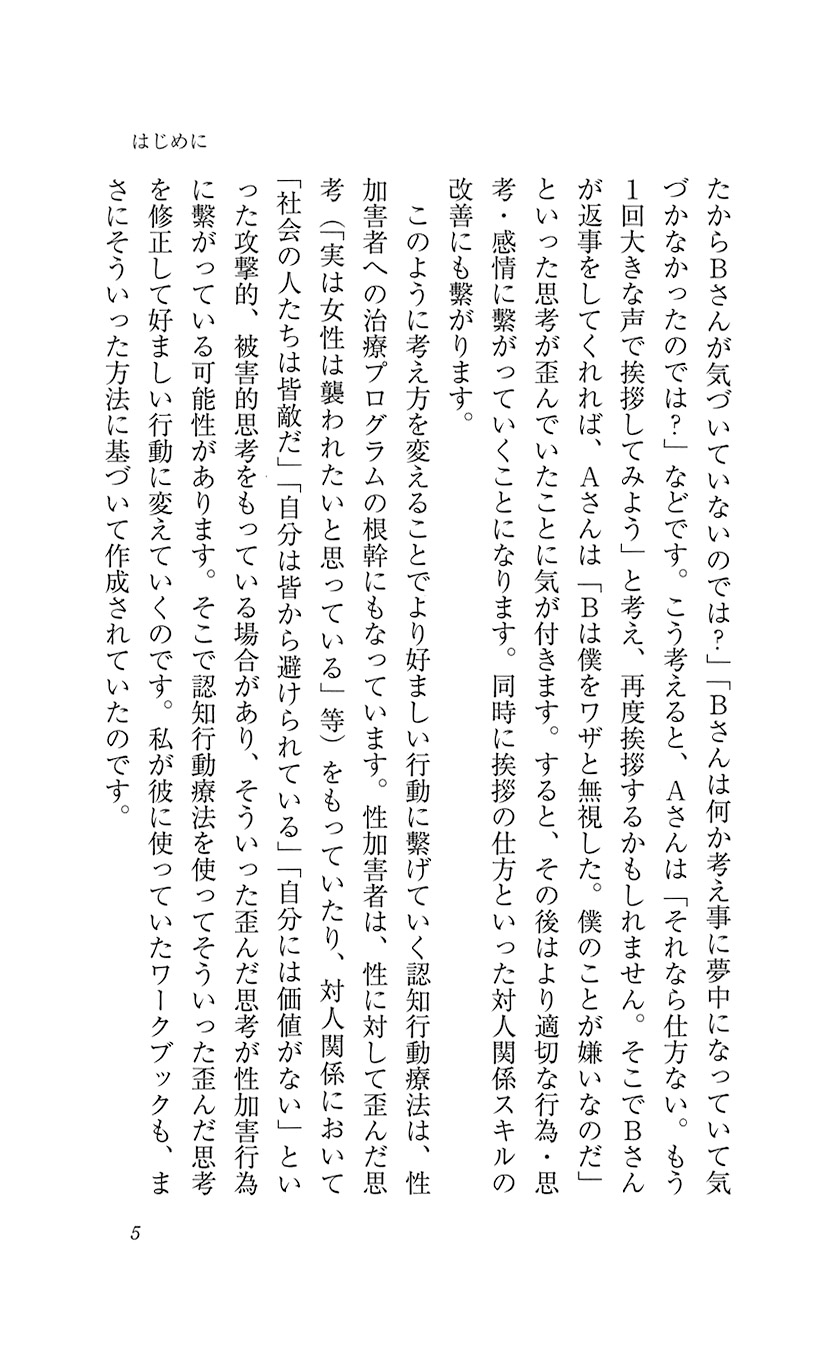 はじめに
たからBさんが気づいていないのでは?」「Bさんは何か考え事に夢中になっていて気
づかなかったのでは?」などです。こう考えると、Aさんは「それなら仕方ない。もう
1回大きな声で挨拶してみよう」と考え、再度挨拶するかもしれません。そこでBさん
が返事をしてくれれば、Aさんは「Bは僕をワザと無視した。僕のことが嫌いなのだ」
といった思考が歪んでいたことに気が付きます。すると、その後はより適切な行為・思
考・感情に繋がっていくことになります。同時に挨拶の仕方といった対人関係スキルの
改善にも繋がります。
このように考え方を変えることでより好ましい行動に繋げていく認知行動療法は、性
加害者への治療プログラムの根幹にもなっています。性加害者は、性に対して歪んだ思
考(「実は女性は襲われたいと思っている」等)をもっていたり、対人関係において
「社会の人たちは皆敵だ」「自分は皆から避けられている」「自分には価値がない」とい
った攻撃的、被害的思考をもっている場合があり、そういった歪んだ思考が性加害行為
に繋がっている可能性があります。そこで認知行動療法を使ってそういった歪んだ思考
を修正して好ましい行動に変えていくのです。私が彼に使っていたワークブックも、ま
さにそういった方法に基づいて作成されていたのです。
5